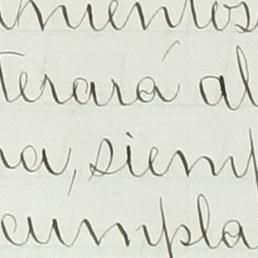 mientos
terará al
na, siemp
cumpla